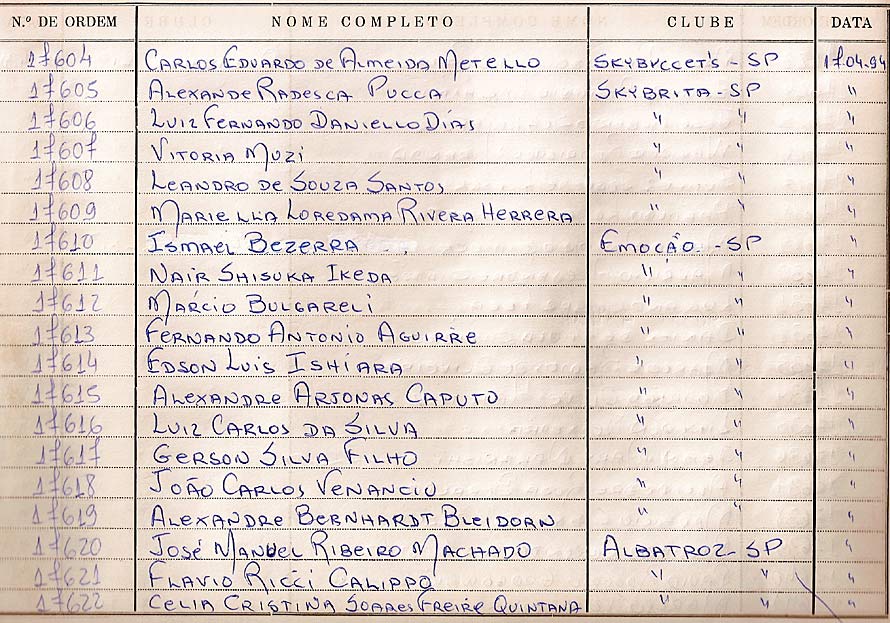 N.º DE ORDEM NOME COMPLETO CLUBE DATA
17604 CARLOS EDUARDO DE ALMEIDA METELLO SKYBUCCET'S - SP 17.04.94
17605 ALEXANDE RADESCA PUCCA SKYBRITA - SP "
17606 LUIZ FERNANDO DANIELLO DIAS " " "
17607 VITORIA MUZI " " "
17608 LEANDRO DE SOUZA SANTOS " " "
17609 MARIELLA LOREDAMA RIVERA HERRERA " " "
17610 ISMAEL BEZERRA EMOÇÃO - SP "
17611 NAIR SHISUKA IKEDA " " "
17612 MÁRCIO BULGARELI " " "
17613 FERNANDO ANTONIO AGUIRRE " " "
17614 EDSON LUIS ISHIARA " " "
17615 ALEXANDRE ARJONAS CAPUTO " " "
17616 LUIZ CARLOS DA SILVA " " "
17617 GERSON SILVA FILHO " " "
17618 JOÃO CARLOS VENANCIO " " "
17619 ALEXANDRE BERNHARDT BLEIDORN " " "
17620 JOSÉ MANUEL RIBEIRO MACHADO ALBATROZ - SP "
17621 FLAVIO RICCI CALIPPO " " "
17622 CELIA CRISTINA SOARES FREIRE QUINTANA " " "